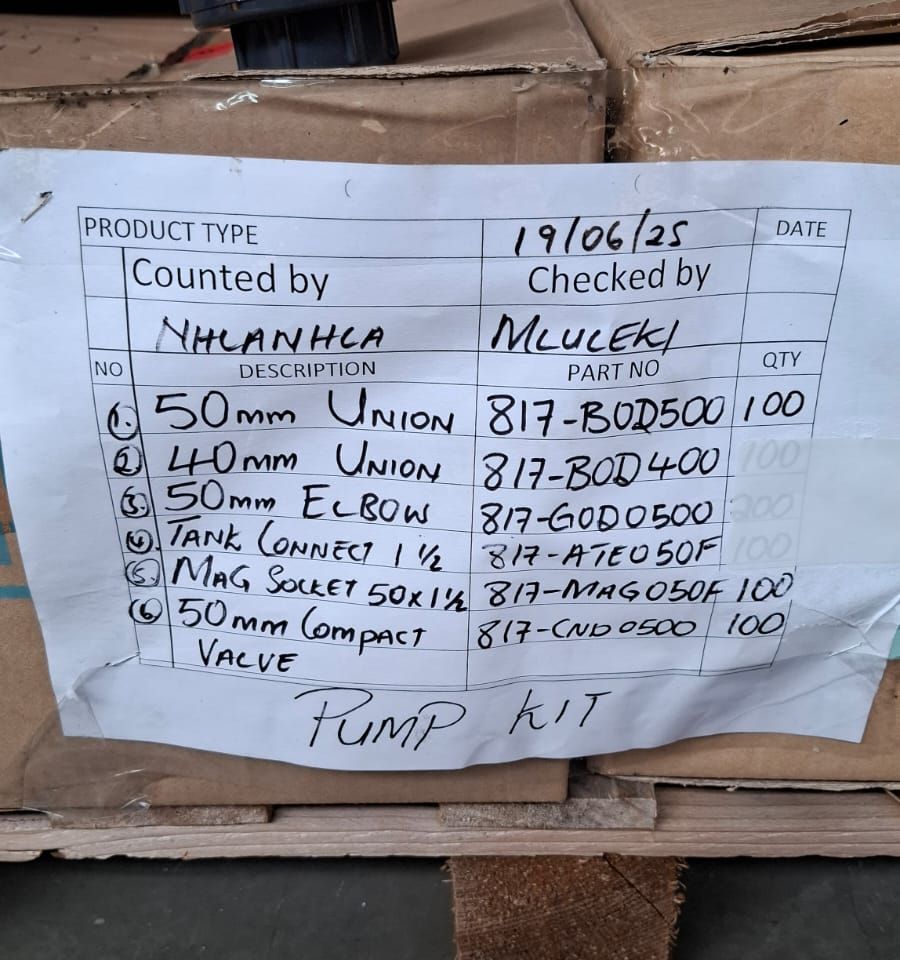 PRODUCT TYPE 19/06/25 DATE
Counted by Checked by
NHLANHLA MLULEKI
NO DESCRIPTION PART NO QTY
1. 50mm UNION 817-BOD500 100
2 40mm UNION 817-BOD400 100
3. 50mm ELBOW 817-GOD0500 200
4. TANK CONNECT 1 1/2 817-ATE050F 100
5. MAG SOCKET 50x1 1/2 817-MAG050F 100
6 50mm COMPACT 817-CND0500 100
VALVE
PUMP KIT